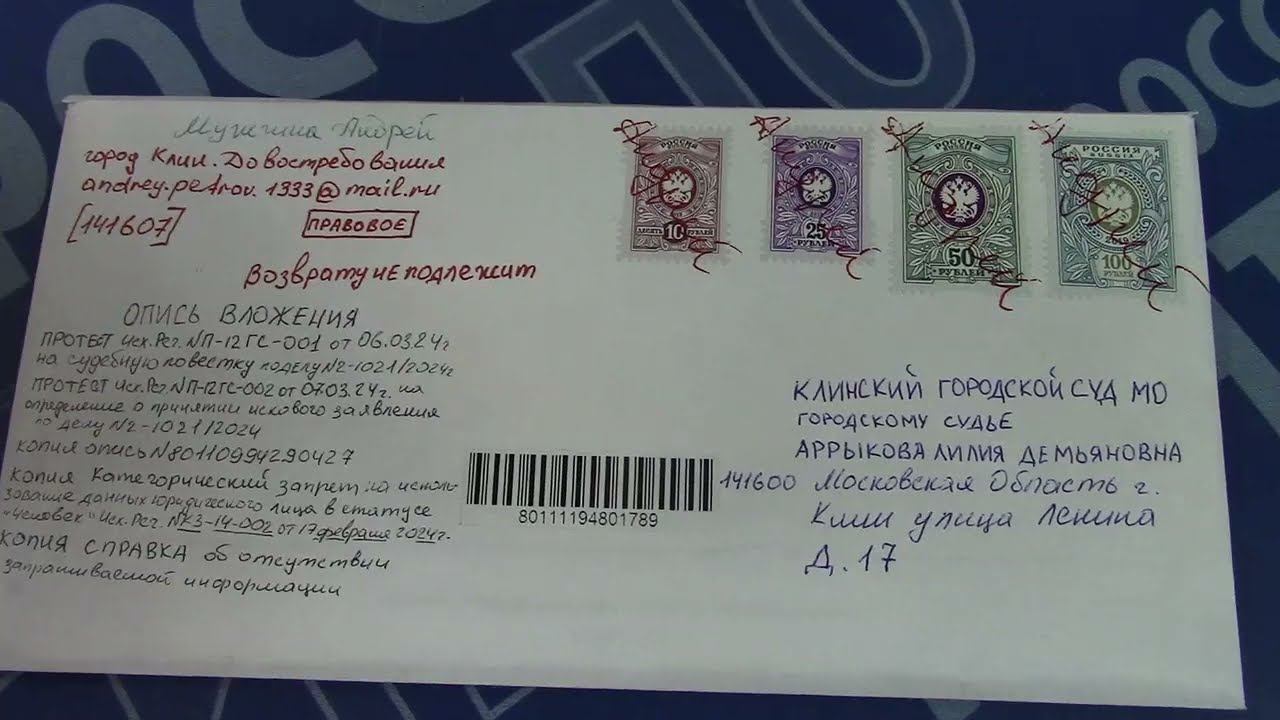 Мужчина Андрей
город Клин. До востребования
andrey.petrov.1333@mail.ru
[141607]
ПРАВОВОЕ
Возврату не подлежит
ОПИСЬ ВЛОЖЕНИЯ
ПРОТЕСТ Исх.Рег.№П-12ГС-001 от 06.03.24г
на судебную повестку по делу №2-1021/2024г
ПРОТЕСТ Исх.Рег.№П-12ГС-002 от 07.03.24г. на
определение о принятии искового заявления
по делу №2-1021/2024
КОПИЯ опись №80110994290427
КОПИЯ Категорический запрет на исполь-
зование данных юридического лица в статусе
"Человек" Исх.Рег. №КЗ-14-002 от 17 февраля 2024г.
КОПИЯ СПРАВКА об отсутствии
запрашиваемой информации
РОССИЯ
ROSSIA
10
ДЕСЯТЬ РУБЛЕЙ
РОССИЯ
25
РУБЛЕЙ
РОССИЯ
50
РУБЛЕЙ
РОССИЯ
ROSSIA
2019
100
РУБЛЕЙ
80111194801789
КЛИНСКИЙ ГОРОДСКОЙ СУД МО
ГОРОДСКОМУ СУДЬЕ
АРРЫКОВА ЛИЛИЯ ДЕМЬЯНОВНА
141600 Московская Область г.
Клин улица Ленина
Д. 17